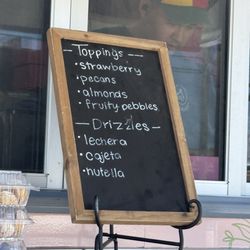 — Toppings —
• strawberry
• pecans
• almonds
• fruity pebbles
— Drizzles —
• lechera
• cajeta
• nutella